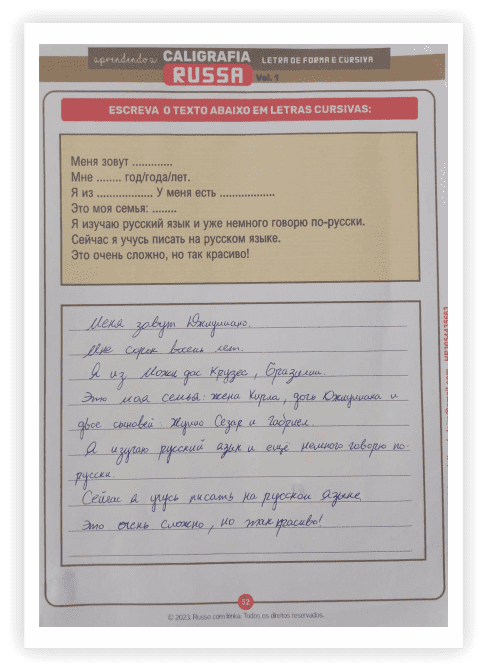 aprendendo a CALIGRAFIA RUSSA LETRA DE FORMA E CURSIVA
Vol. 1
ESCREVA O TEXTO ABAIXO EM LETRAS CURSIVAS:
Меня зовут .............
Мне ........ год/года/лет.
Я из .................. У меня есть ..................
Это моя семья: ........
Я изучаю русский язык и уже немного говорю по-русски.
Сейчас я учусь писать на русском языке.
Это очень сложно, но так красиво!
Меня зовут Южиулиано.
Мне сорок восемь лет.
Я изМожи дас Крузес, Бразилии.
Это моя семья: жена Кирла, дочь Южиулиана и
двое сыновей: Жулио Сезар и Габриел.
Я изучаю русский язык и ещё немного говорю по-
русски.
Сейчас я учусь писать на русском языке
Это очень сложно, но так красиво!
52
© 2023. Russo com Irinka. Todos os direitos reservados.